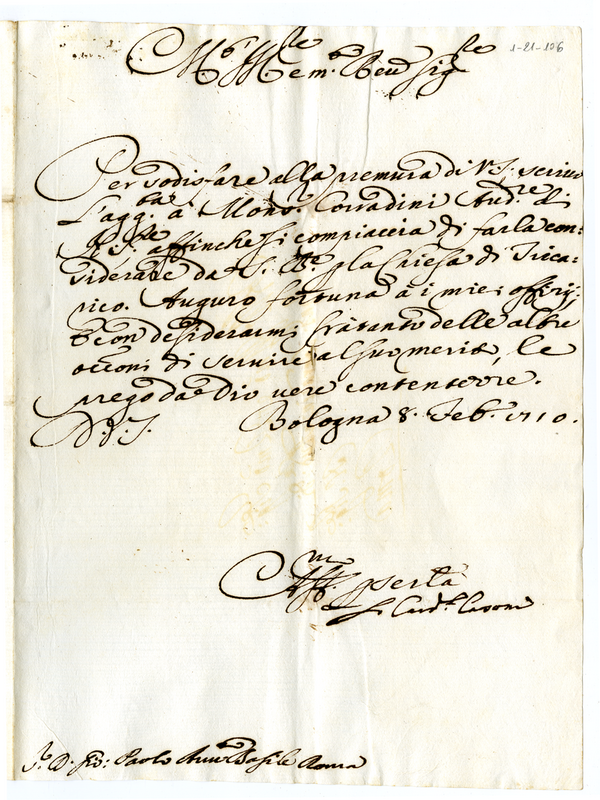 1-21-106
M.to Ill.re e m.to Rev.do Sig.re
Per sodisfare alla premura di V.S. scrivo
l'agg.ta à Mons.r Corradini Aud.re di
N.S.re affinche si compiaccia di farla con:
siderare da S. B.ne p la Chiesa di Trica:
rico. Auguro fortuna à i miei offizij,
e con desiderarmi frà tanto delle altre
occ.oni di servire al suo merito, le
prego da Dio vere contentezze.
D. V. S. Bologna 8. Feb.o 1710.
Aff.mo p ser.la
F. Card.le Casoni
S.r D. Gio: Paolo Ant.o Basile Roma